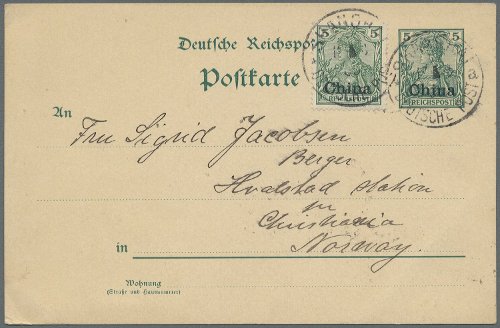 Deutsche Reichspost
Postkarte
5 5
China
REICHSPOST
5 5
China
REICHSPOST
SHANGHAI
DEUTSCHE POST
An
Fru Sigrid Jacobsen
Berger
Hvalstad station
pr
Christiania
Norway.
in
Wohnung
(Straße und Hausnummer)